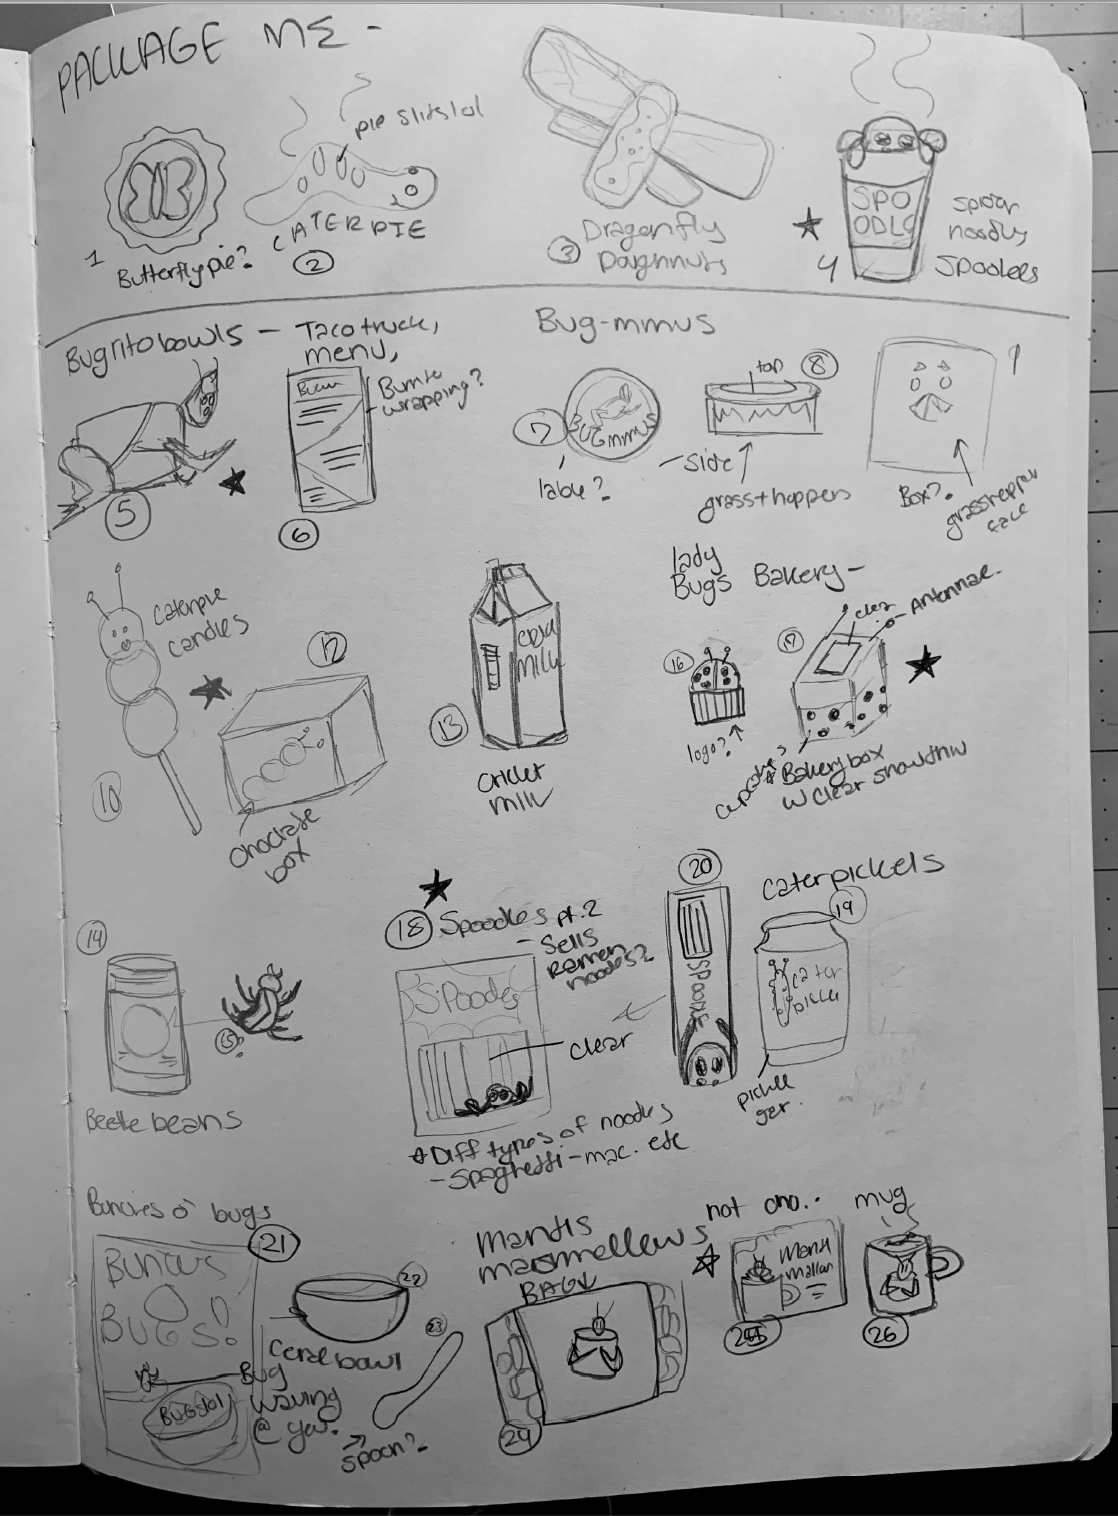 PACKAGE ME -
pie slits lol
1
Butterfly pie?
CATERPIE
2
3
Dragonfly
Doughnuts
4
SPO
ODLE
spider
noodles
Spoodles
Bugrito bowls - Taco truck,
menu,
5
6
Burrito
wrapping?
Bug-mmus
7
BUGMMUS
lable?
8
top
- side
grass + hoppers
9
Box?
grasshopper
face
Caterpie
candies
10
12
Choclate
box
13
MILK
Cricket
MILK
lady
Bugs Bakery -
16
logo?
cupcakes
17
clear
Antennae.
* Bakery box
w clear
14
15?
Beetle beans
18 Spoodles pt. 2
- Sells
Ramen
noodes?
Spoodles
clear
* Diff types of noodles
- Spaghetti - mac. etc
20
SPOODLE
Caterpickels
19
Cater
pickle
pickle
Bunches o' bugs
21
BUGS!
BUGS lol
Bug
waving
@ you.
22
Cereal bowl
23
Spoon?
Mantis
marsmellows
BAG
24
not cho..
25
mug
26